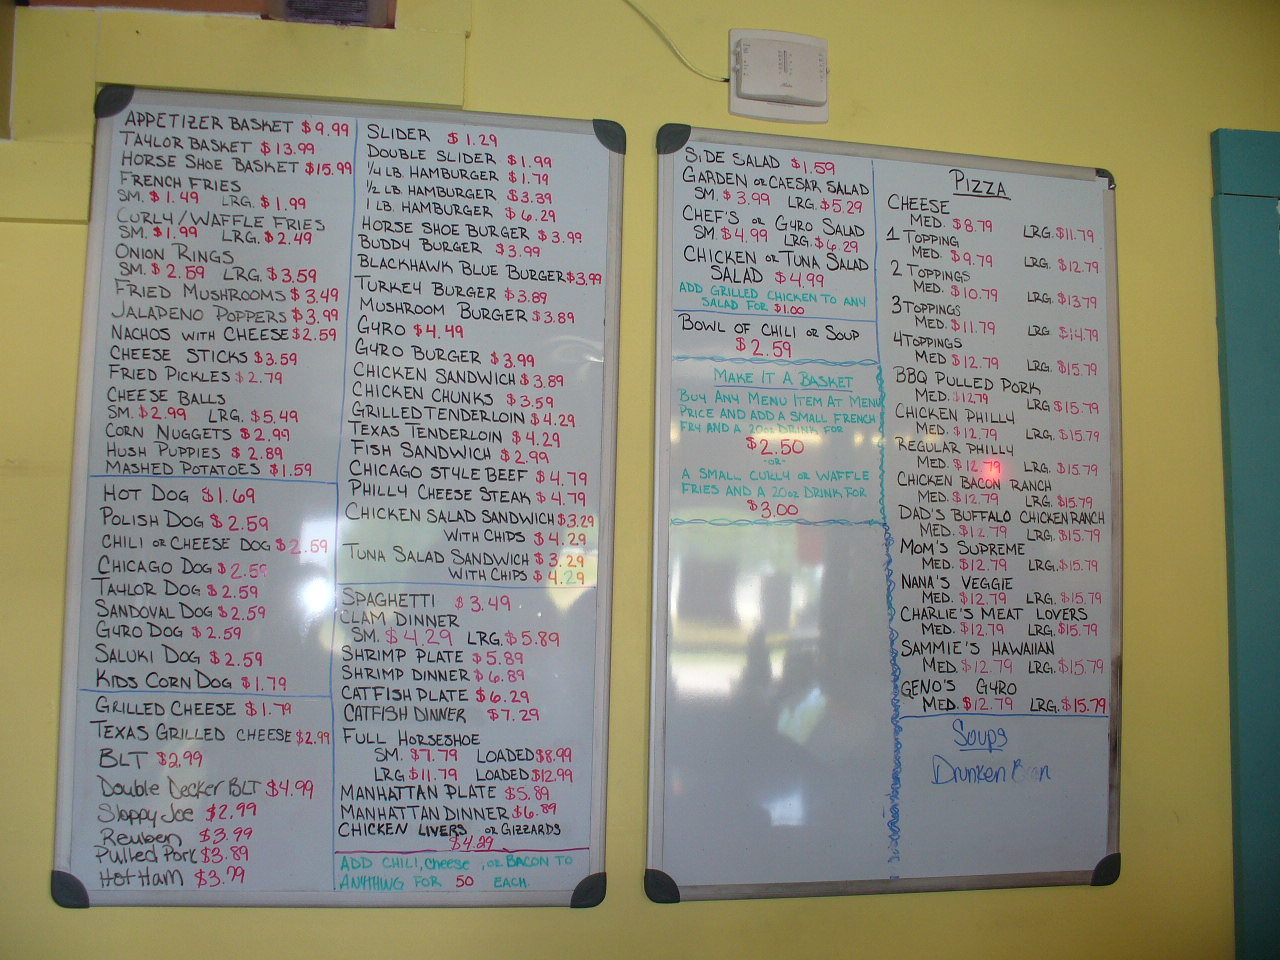 APPETIZER BASKET $9.99
TAYLOR BASKET $13.99
HORSE SHOE BASKET $15.99
FRENCH FRIES
SM. $1.49 LRG. $1.99
CURLY/WAFFLE FRIES
SM. $1.99 LRG. $2.49
ONION RINGS
SM. $2.59 LRG. $3.59
FRIED MUSHROOMS $3.49
JALAPENO POPPERS $3.99
NACHOS WITH CHEESE $2.59
CHEESE STICKS $3.59
FRIED PICKLES $2.79
CHEESE BALLS
SM. $2.99 LRG. $5.49
CORN NUGGETS $2.99
HUSH PUPPIES $2.89
MASHED POTATOES $1.59
HOT DOG $1.69
POLISH DOG $2.59
CHILI OR CHEESE DOG $2.59
CHICAGO DOG $2.59
TAYLOR DOG $2.59
SANDOVAL DOG $2.59
GYRO DOG $2.59
SALUKI DOG $2.59
KIDS CORN DOG $1.79
GRILLED CHEESE $1.79
TEXAS GRILLED CHEESE $2.99
BLT $2.99
Double Decker BLT $4.99
Sloppy Joe $2.99
Reuben $3.99
Pulled Pork $3.89
Hot Ham $3.79
SLIDER $1.29
DOUBLE SLIDER $1.99
1/4 LB. HAMBURGER $1.79
1/2 LB. HAMBURGER $3.39
1 LB. HAMBURGER $6.29
HORSE SHOE BURGER $3.99
BUDDY BURGER $3.99
BLACKHAWK BLUE BURGER $3.99
TURKEY BURGER $3.89
MUSHROOM BURGER $3.89
GYRO $4.49
GYRO BURGER $3.99
CHICKEN SANDWICH $3.89
CHICKEN CHUNKS $3.59
GRILLED TENDERLOIN $4.29
TEXAS TENDERLOIN $4.29
FISH SANDWICH $2.99
CHICAGO STYLE BEEF $4.79
PHILLY CHEESE STEAK $4.79
CHICKEN SALAD SANDWICH $3.29
WITH CHIPS $4.29
TUNA SALAD SANDWICH $3.29
WITH CHIPS $4.29
SPAGHETTI $3.49
CLAM DINNER
SM. $4.29 LRG. $5.89
SHRIMP PLATE $5.89
SHRIMP DINNER $6.89
CATFISH PLATE $6.29
CATFISH DINNER $7.29
FULL HORSESHOE
SM. $7.79 LOADED $8.99
LRG $11.79 LOADED $12.99
MANHATTAN PLATE $5.89
MANHATTAN DINNER $6.89
CHICKEN LIVERS OR GIZZARDS
$4.29
ADD CHILI, Cheese, OR BACON TO
ANYTHING FOR 50 EACH.
SIDE SALAD $1.59
GARDEN OR CAESAR SALAD
SM. $3.99 LRG. $5.29
CHEF'S OR GYRO SALAD
SM. $4.99 LRG. $6.29
CHICKEN OR TUNA SALAD
SALAD $4.99
ADD GRILLED CHICKEN TO ANY
SALAD FOR $1.00
BOWL OF CHILI OR SOUP
$2.59
MAKE IT A BASKET
BUY ANY MENU ITEM AT MENU
PRICE AND ADD A SMALL FRENCH
FRY AND A 20oz DRINK FOR
$2.50
-OR-
A SMALL CURLY OR WAFFLE
FRIES AND A 20oz DRINK FOR
$3.00
PIZZA
CHEESE
MED. $8.79 LRG. $11.79
1 TOPPING
MED. $9.79 LRG. $12.79
2 TOPPINGS
MED. $10.79 LRG. $13.79
3 TOPPINGS
MED. $11.79 LRG $14.79
4 TOPPINGS
MED $12.79 LRG. $15.79
BBQ PULLED PORK
MED. $12.79 LRG $15.79
CHICKEN PHILLY
MED. $12.79 LRG. $15.79
REGULAR PHILLY
MED. $12.79 LRG. $15.79
CHICKEN BACON RANCH
MED. $12.79 LRG. $15.79
DAD'S BUFFALO CHICKEN RANCH
MED. $12.79 LRG. $15.79
MOM'S SUPREME
MED. $12.79 LRG. $15.79
NANA'S VEGGIE
MED. $12.79 LRG. $15.79
CHARLIE'S MEAT LOVERS
MED. $12.79 LRG. $15.79
SAMMIE'S HAWAIIAN
MED $12.79 LRG. $15.79
GENO'S GYRO
MED. $12.79 LRG. $15.79
Soups
Drunken